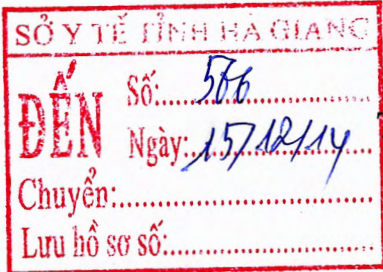 SỞ Y TẾ TỈNH HÀ GIANG
ĐẾN
Số:.....566.....
Ngày:.15/12/14.....
Chuyển:.....
Lưu hồ sơ số:.....